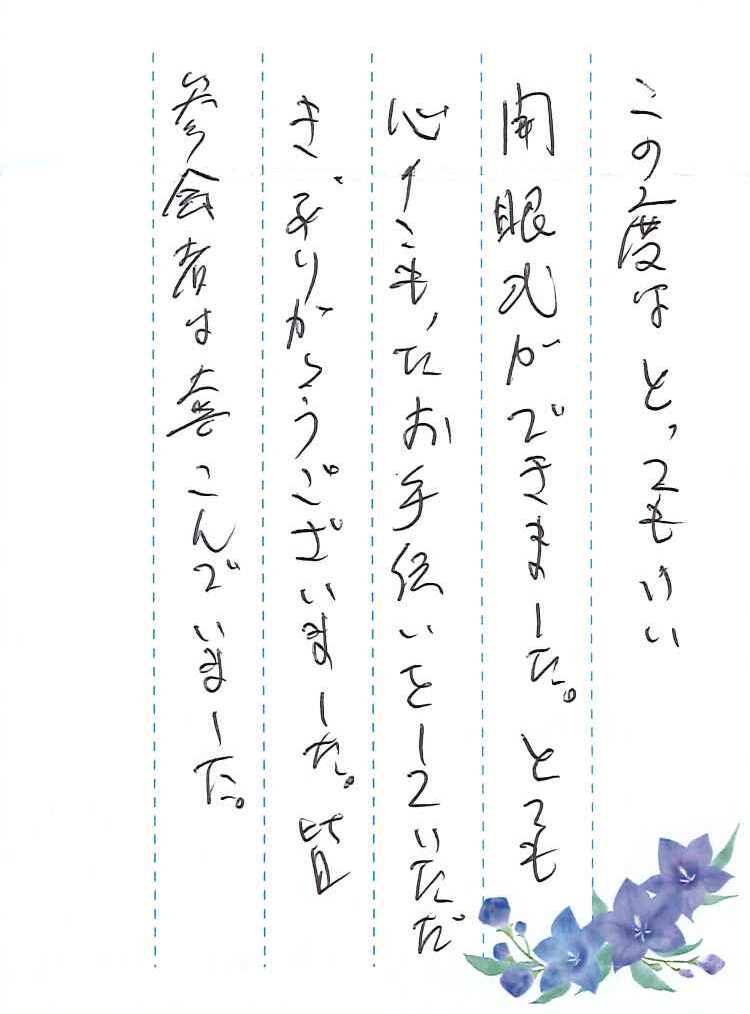 この2度はとってもいい
開眼式ができました。とても
心のこもったお手伝いをしていただ
きありがとうございました。皆
参会者は喜こんでいました。